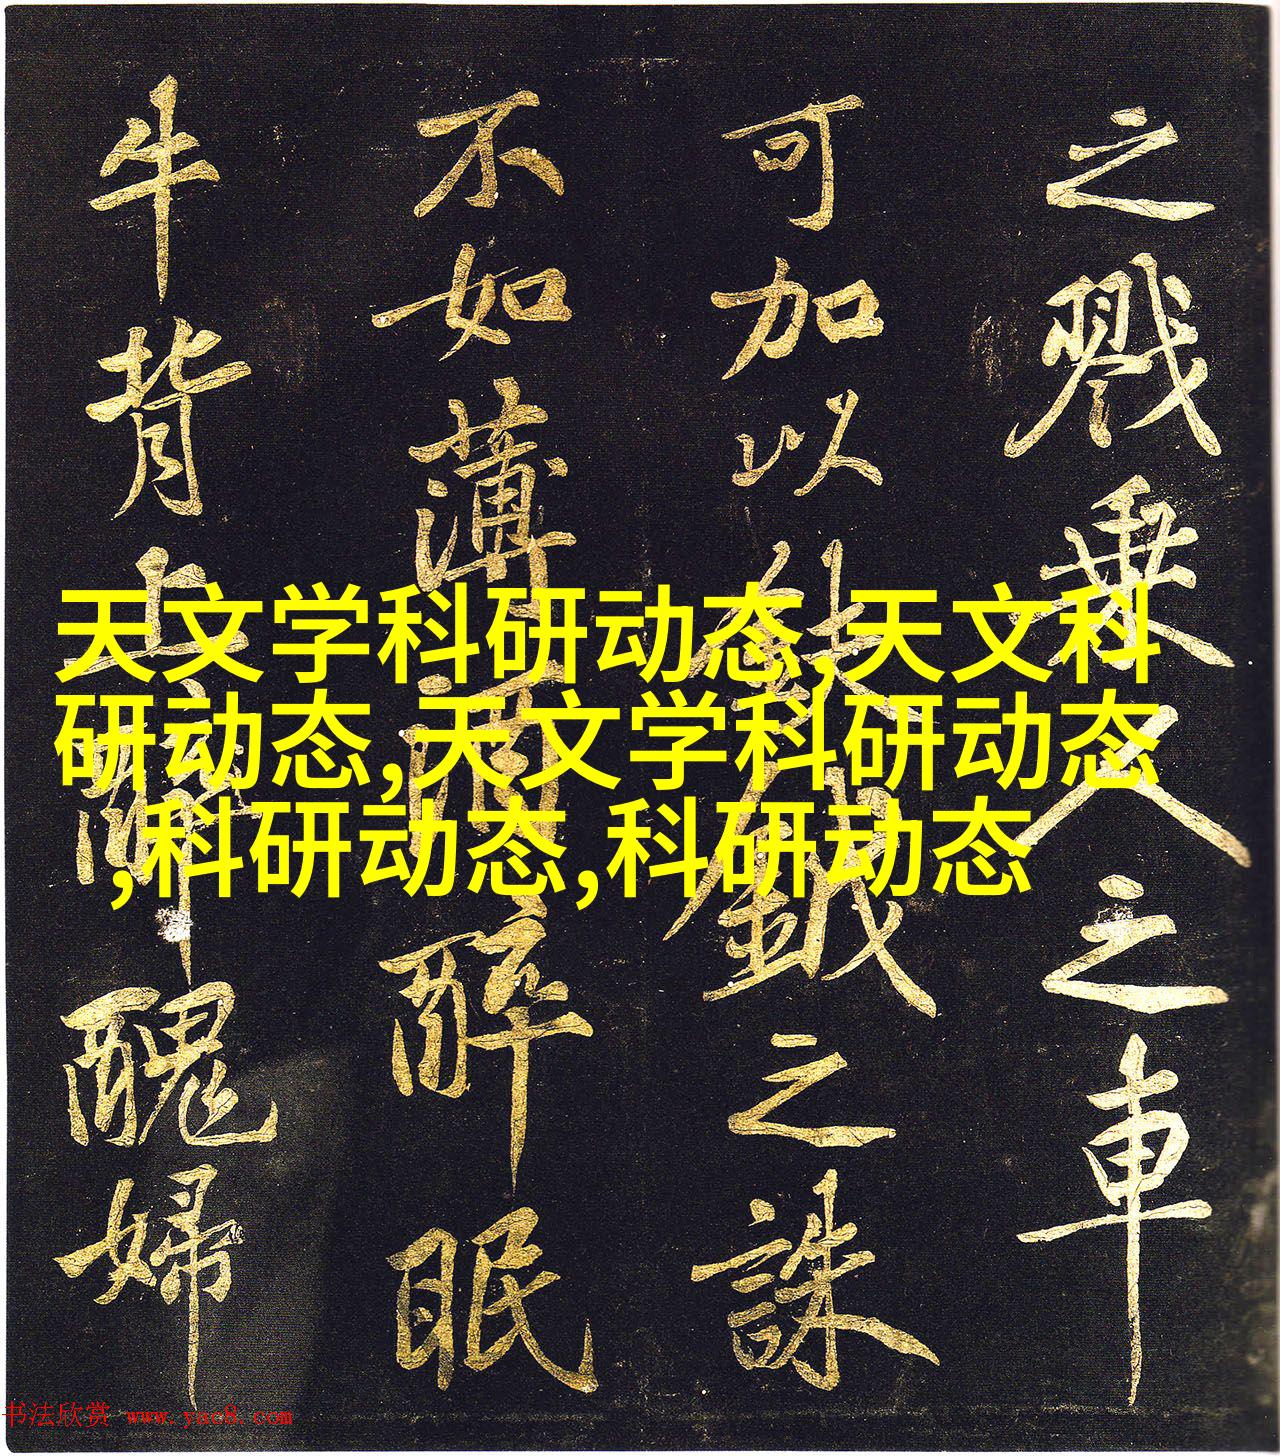 天文学科研动态,天文科
研动态,天文学科研动态
,科研动态,科研动态
之戮乘人之車
可加以鈇鉞之誅
不如薄酒醉眠
牛背上醉醜婦
书法欣赏 www.yac8.com